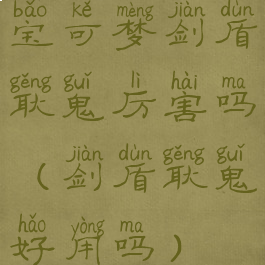 bǎo kě mèng jiàn dùn
宝可梦剑盾
gěng guǐ lì hài ma
耿鬼厉害吗
jiàn dùn gěng guǐ
（剑盾耿鬼
hǎo yòng ma
好用吗）